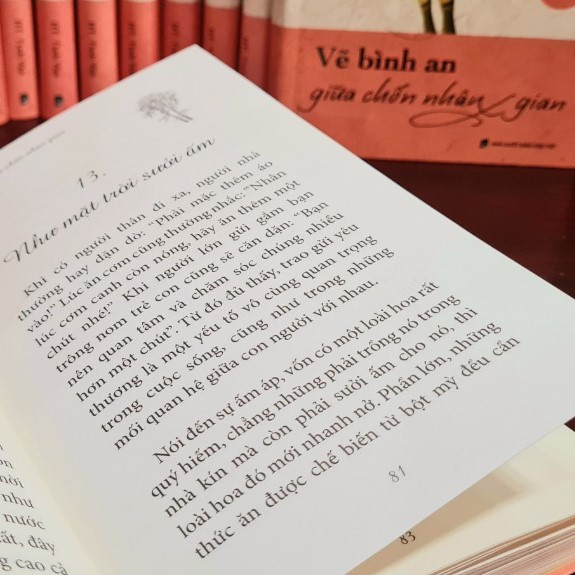 Vẽ bình an
giữa chốn nhân gian
13.
Như mặt trời sưởi ấm
Khi có người thân đi xa, người nhà
thường hay dặn dò: "Phải mặc thêm áo
vào!" Lúc ăn cơm cũng thường nhắc: "Nhân
lúc cơm canh còn nóng, hãy ăn thêm một
chút nhé!" Khi người lớn gửi gắm bạn
trông nom trẻ con cũng sẽ căn dặn: "Bạn
nên quan tâm và chăm sóc chúng nhiều
hơn một chút". Từ đó đủ thấy, trao gửi yêu
thương là một yếu tố vô cùng quan trọng
trong cuộc sống, cũng như trong những
mối quan hệ giữa con người với nhau.
Nói đến sự ấm áp, vốn có một loài hoa rất
quý hiếm, chẳng những phải trồng nó trong
nhà kín mà còn phải sưởi ấm cho nó, thì
loài hoa đó mới nhanh nở. Phần lớn, những
thức ăn được chế biến từ bột mỳ đều cần
81
như
nước
đây
cao cả
83